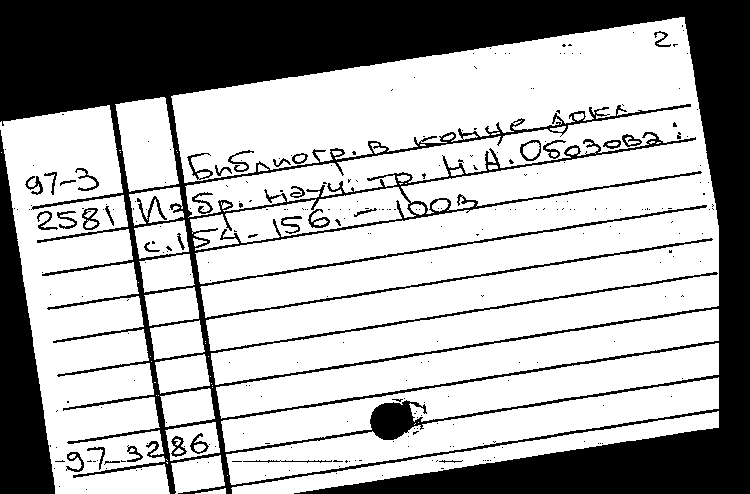 2.
Библиогр. в конце докл.
97-3
2581 Избр. науч. тр. Н.А. Обозова:
с. 154-156. - 100э
97 3286